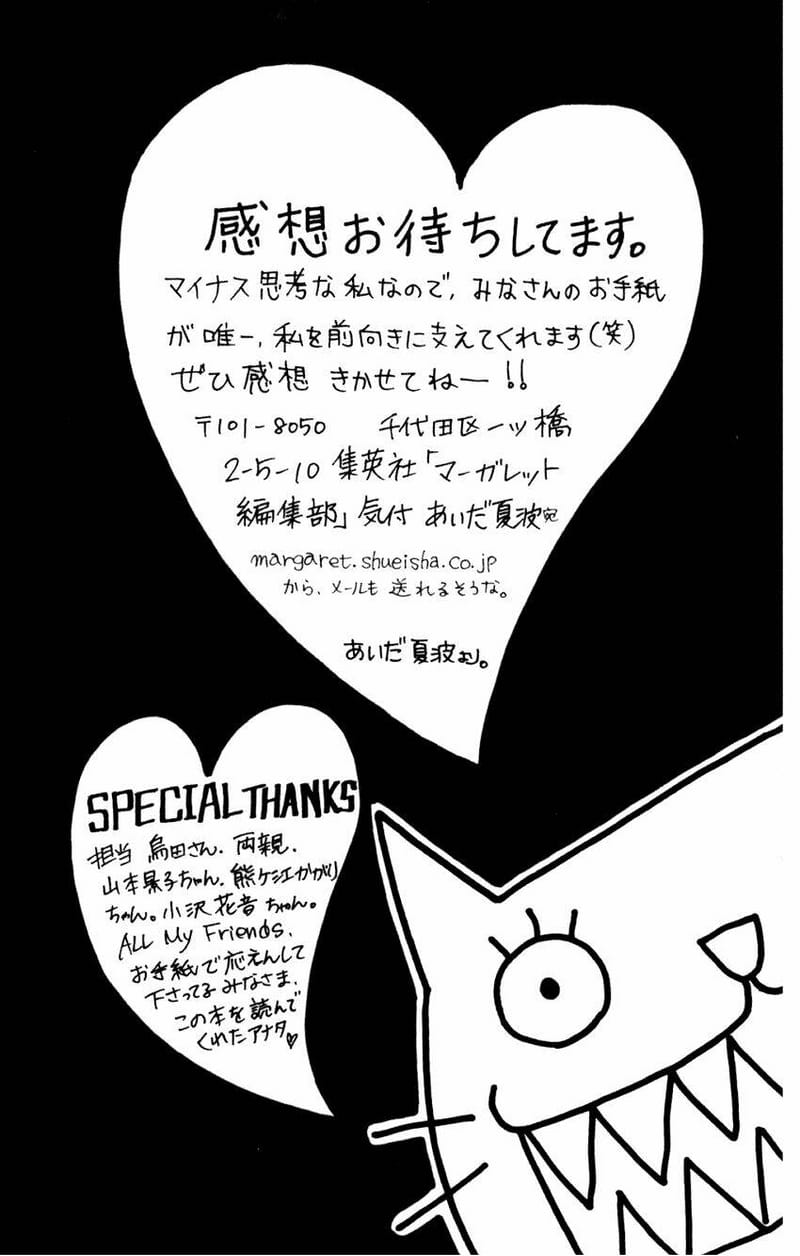 感想お待ちしてます。
マイナス思考な私なので、みなさんのお手紙
が唯一、私を前向きに支えてくれます(笑)
ぜひ感想 きかせてねー!!
〒101-8050 千代田区一ツ橋
2-5-10 集英社「マーガレット
編集部」気付 あいだ夏波宛
margaret.shueisha.co.jp
から、メールも送れるそうな。
あいだ夏波より。
SPECIAL THANKS
担当 鳥田さん、両親、
山本果子ちゃん、熊ケ江かがり
ちゃん。小沢花音ちゃん。
ALL My Friends、
お手紙で応えんして
下さってるみなさま、
この本を読んで
くれたアナタ♡